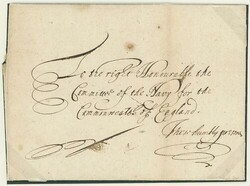 To the right Honourable the
Commrs of the Navy for the
Commonwealth of England.
These humbly present